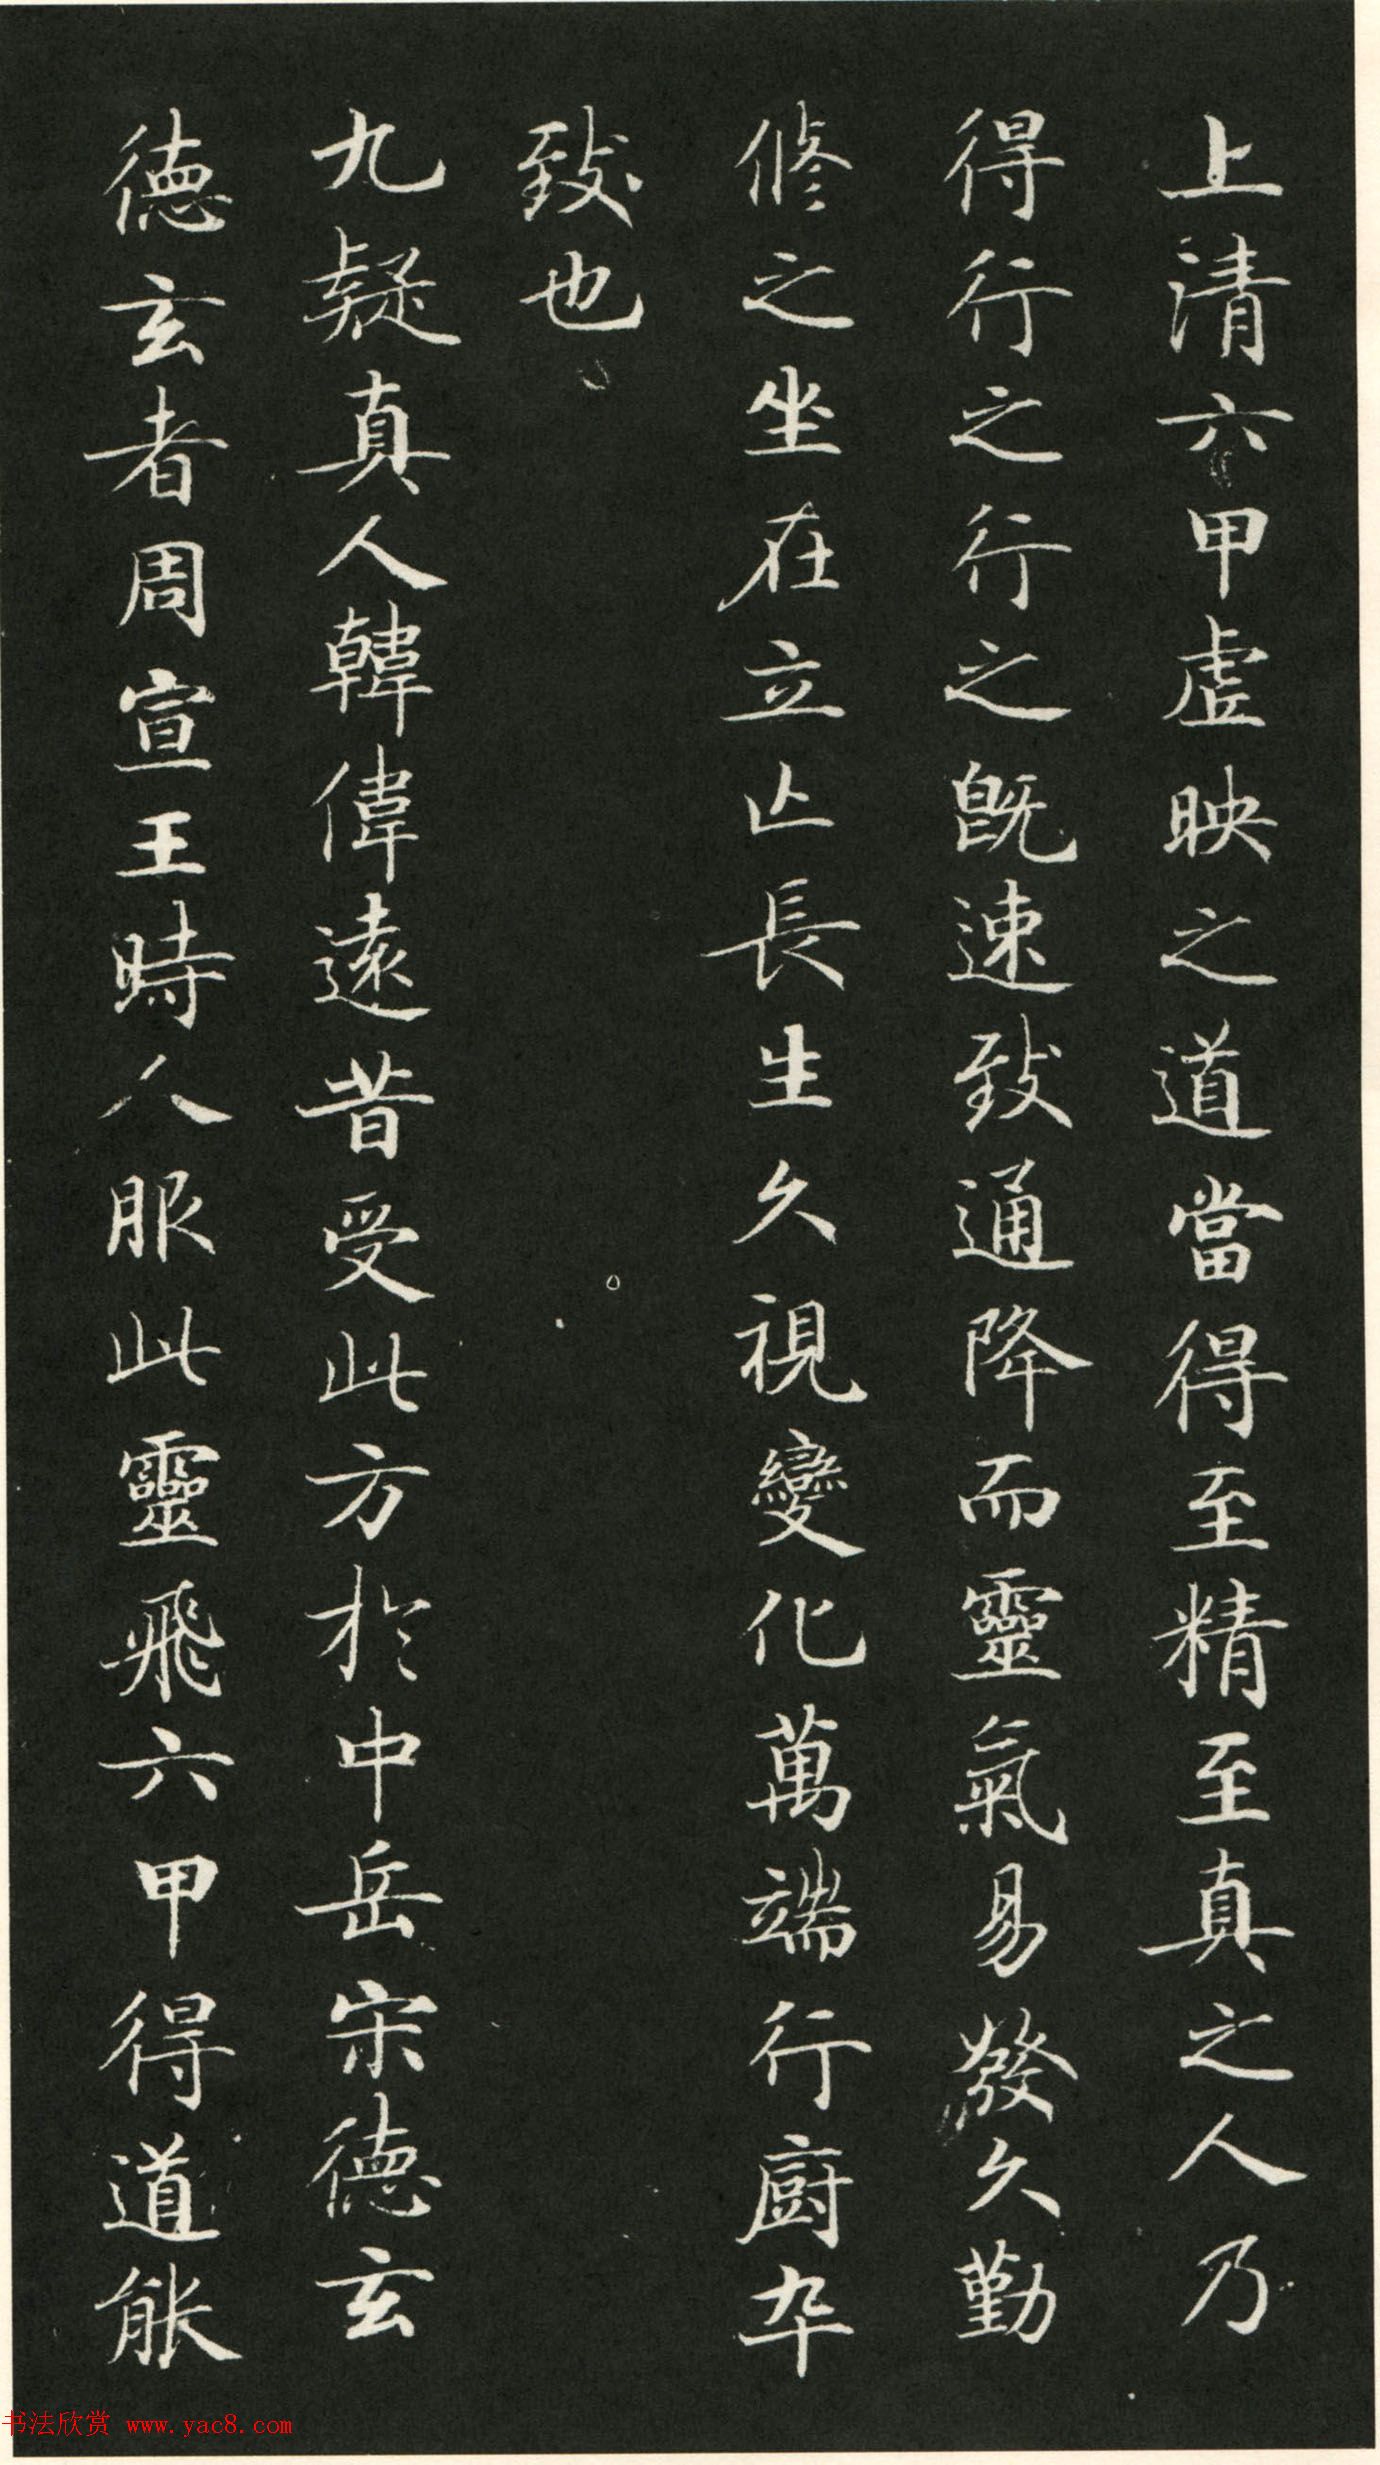 上清六甲虛映之道當得至精至真之人乃
得行之行之既速致通降而靈氣易發久勤
修之坐在立亾長生久視變化萬端行廚卒
致也
九疑真人韓偉遠昔受此方於中岳宋德玄
德玄者周宣王時人服此靈飛六甲得道能
书法欣赏 www.yac8.com